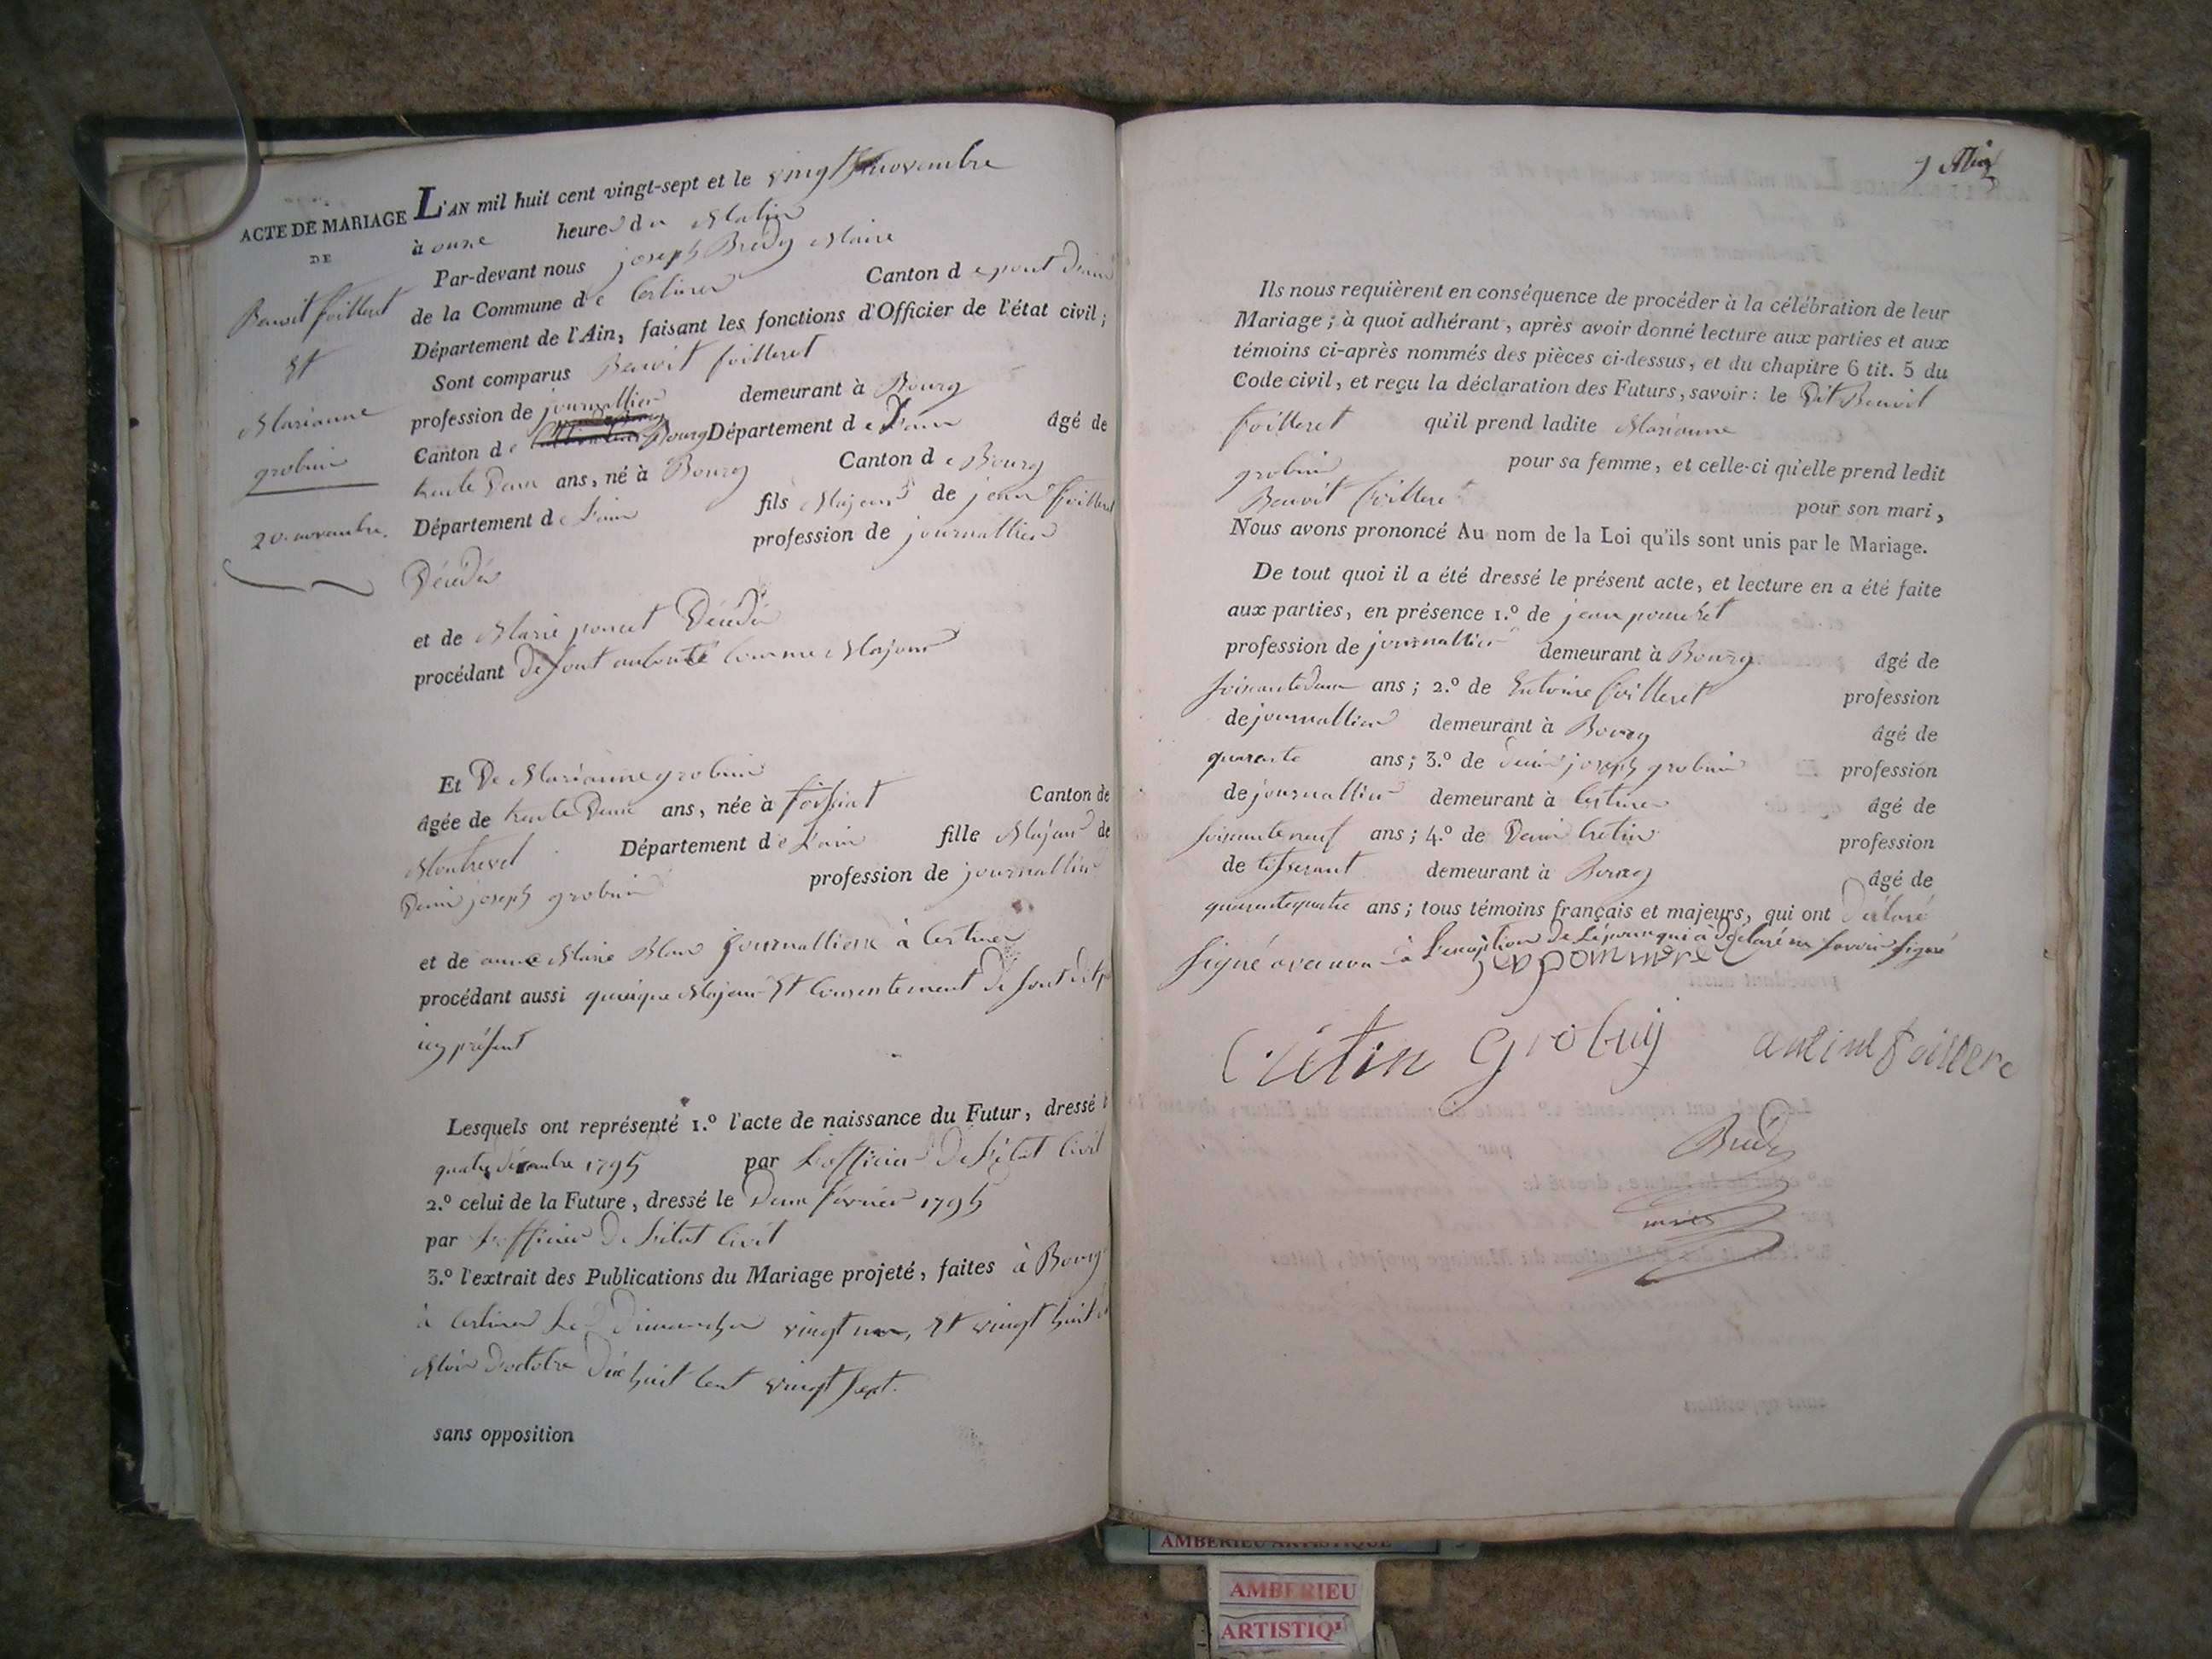 ACTE DE MARIAGE
DE
Benoit foilleret
Et
Marianne
grobuis
20. novembre.
L'AN mil huit cent vingt-sept et le vingt novembre
à onze heures du Matin
Par-devant nous joseph Maire
de la Commune de Certines Canton de pont d'ain
Département de l'Ain, faisant les fonctions d'Officier de l'état civil;
Sont comparus Benoit foilleret
profession de journallier demeurant à Bourg
Canton de Bourg Département de L'ain âgé de
trente Deux ans, né à Bourg Canton de Bourg
Département de L'ain fils Majeur de jean foilleret
profession de journallier
Décédé
et de Marie poncet Décédée
procédant de sont comme Majeur
Et De Marianne grobuis
âgée de trente Deux ans, née à foissiat Canton de
Montrevel Département de L'ain fille Majeur de
Denis joseph grobuis profession de journallier
et de anne Marie Blanc journalliere à Certines
procédant aussi quoique Majeur Et Consentement de sont dit
icy présent
Lesquels ont représenté 1.º l'acte de naissance du Futur, dressé
quatre décembre 1795 par L'officier De L'état Civil
2.º celui de la Future, dressé le Deux février 1795
par L'officier De L'état Civil
3.º l'extrait des Publications du Mariage projeté, faites à Bourg
à Certines Les Dimanches vingt un, Et vingt huit
Mois D'octobre Dix huit Cent vingt sept.
sans opposition
Ils nous requièrent en conséquence de procéder à la célébration de leur
Mariage; à quoi adhérant, après avoir donné lecture aux parties et aux
témoins ci-après nommés des pièces ci-dessus, et du chapitre 6 tit. 5 du
Code civil, et reçu la déclaration des Futurs, savoir: le Dit Benoit
foilleret qu'il prend ladite Marianne
grobuis pour sa femme, et celle-ci qu'elle prend ledit
Benoit foilleret pour son mari,
Nous avons prononcé Au nom de la Loi qu'ils sont unis par le Mariage.
De tout quoi il a été dressé le présent acte, et lecture en a été faite
aux parties, en présence 1.º de jean
profession de journallier demeurant à Bourg âgé de
soixante deux ans; 2.º de Entoine foilleret profession
de journallier demeurant à Bourg âgé de
quarante ans; 3.º de Denis joseph grobuis profession
de journallier demeurant à Certines âgé de
soixante neuf ans; 4.º de Denis Cretin profession
de tisserant demeurant à Bourg âgé de
quarante quatre ans; tous témoins français et majeurs, qui ont Déclaré
signé avec nous à L'exception de L'épouse qui a Déclaré ne savoir signé
Crétin grobuij antine foillere
maire
AMBERIEU ARTISTIQUE
AMBERIEU
ARTISTIQ